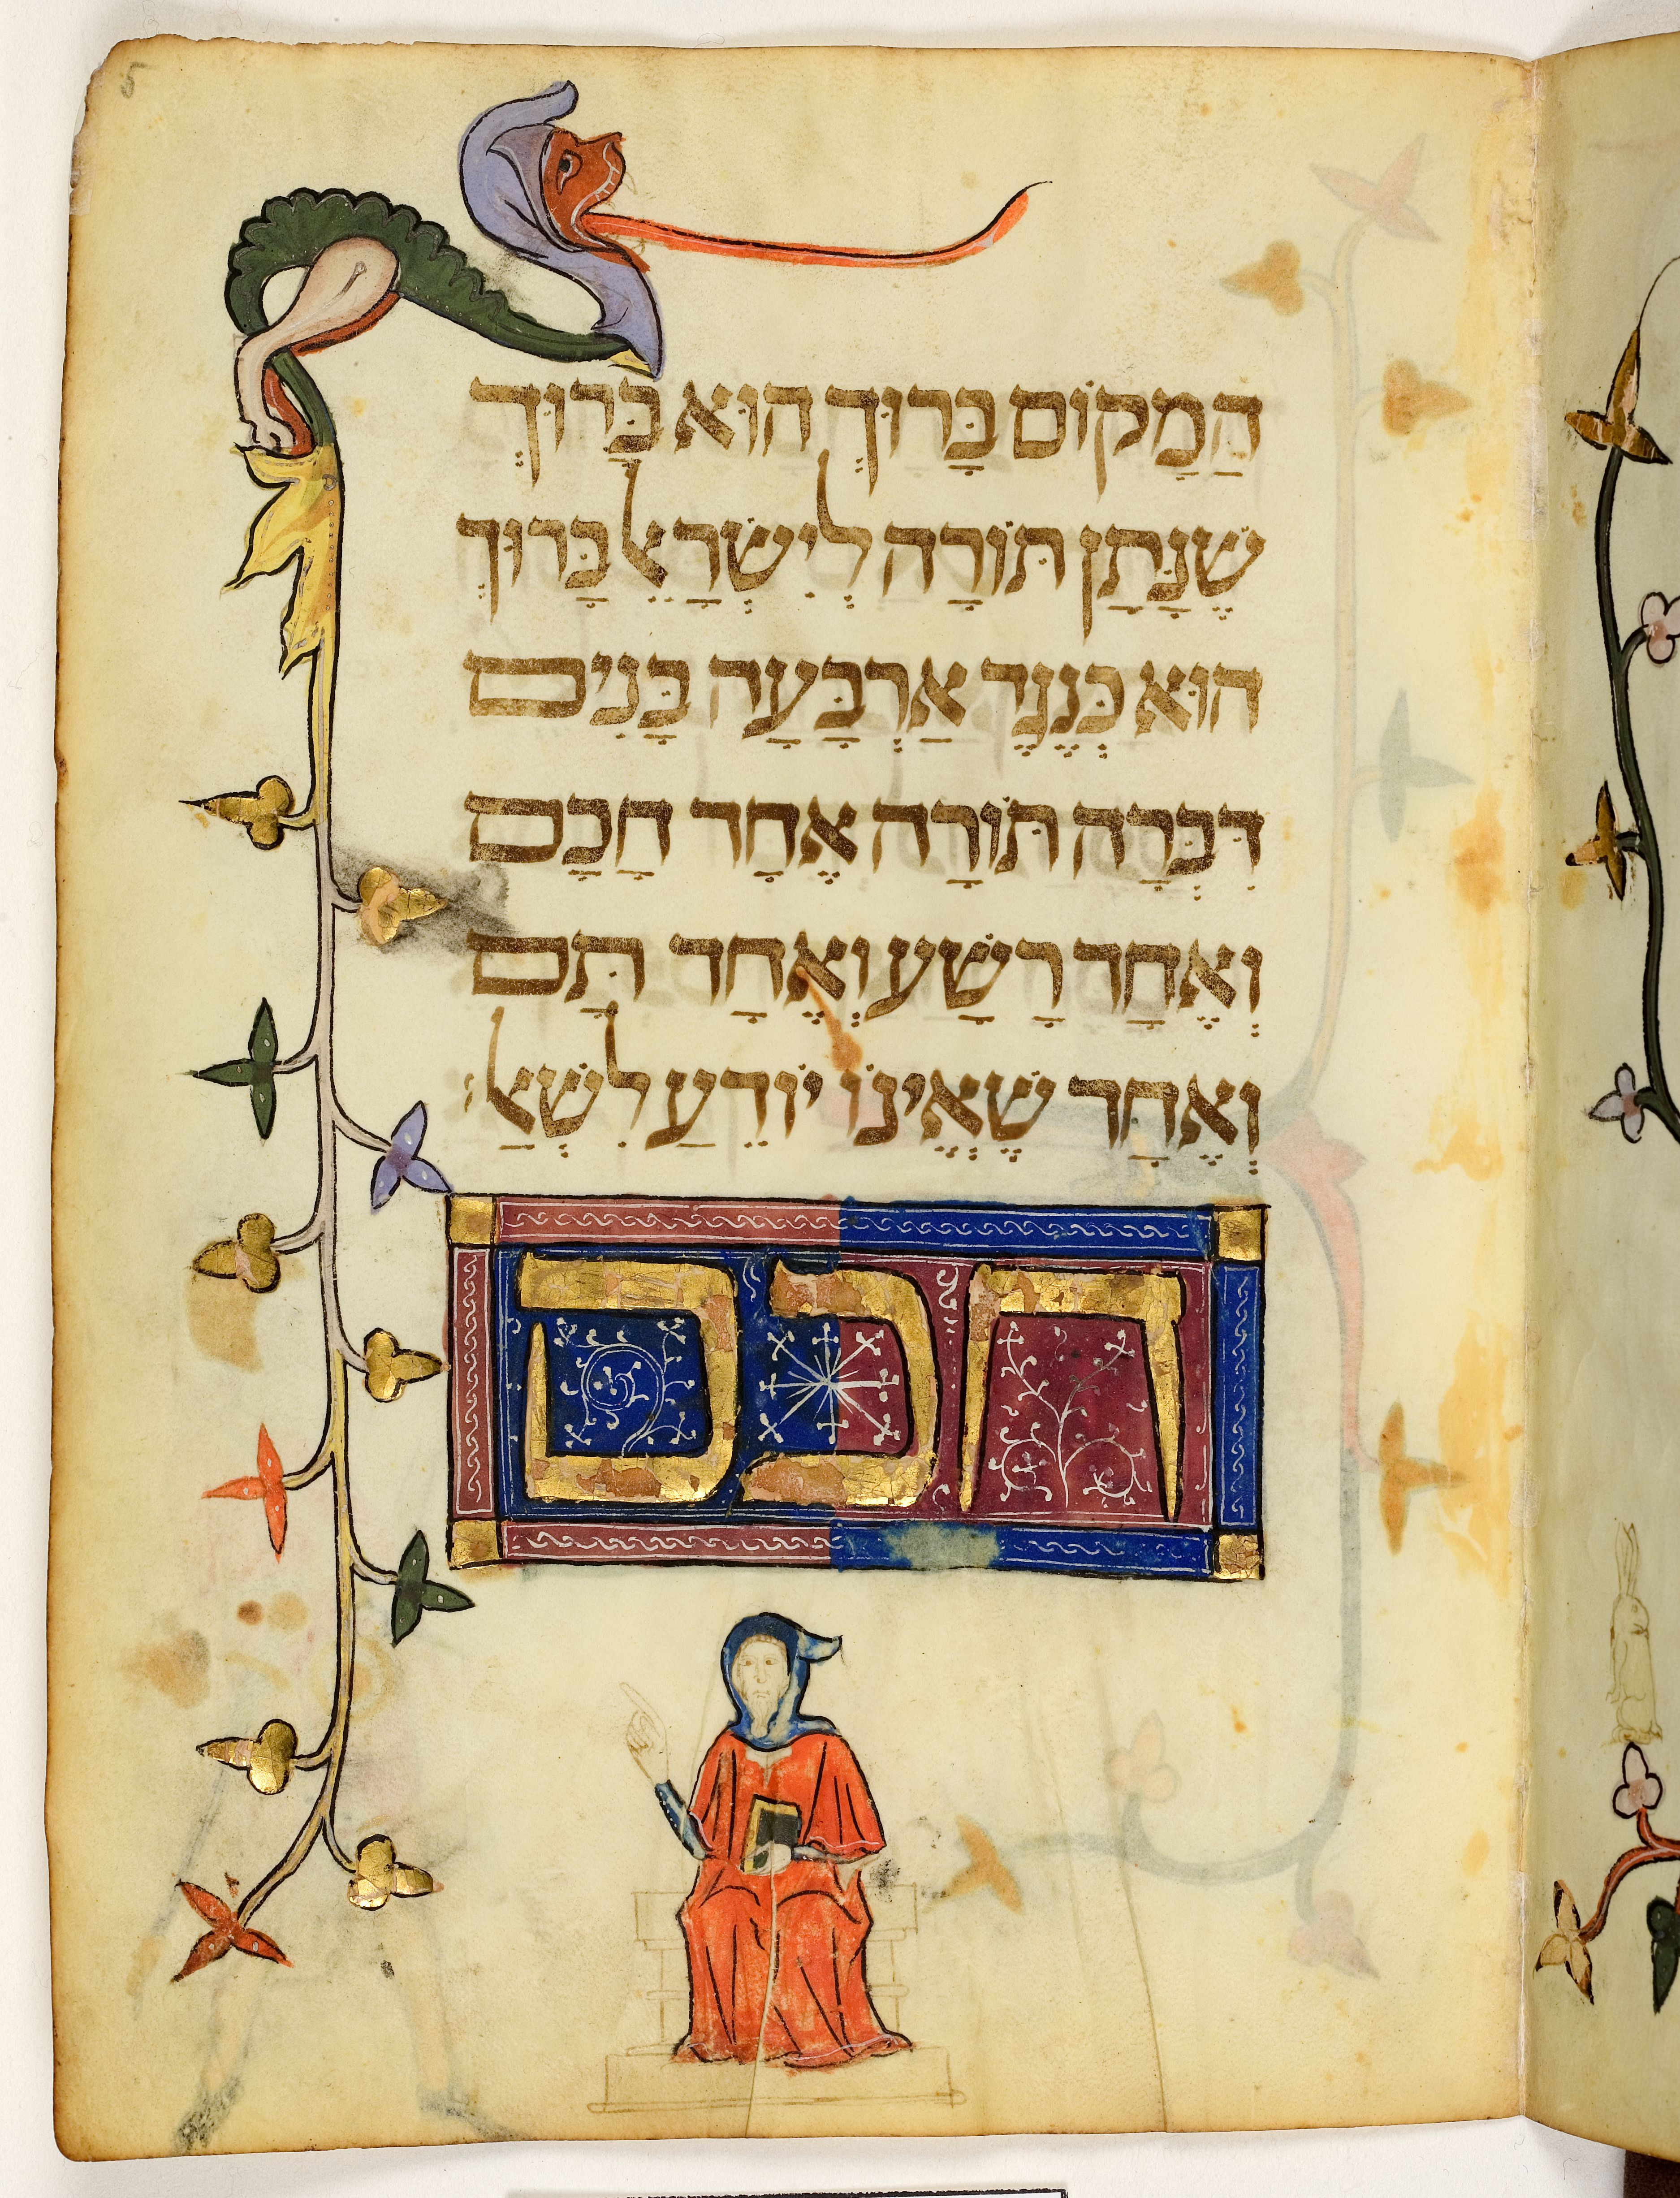 5
הַמָקוֹם בָּרוּךְ הוּא בָּרוּךְ
שֶׁנָּתַן תּוֹרָה לְיִשְׂרָאֵל בָּרוּךְ
הוּא כְּנֶגֶד אַרְבָּעָה בָּנִים
דִּבְּרָה תּוֹרָה אֶחָד חָכָם
וְאֶחָד רָשָׁע וְאֶחָד תָּם
וְאֶחָד שֶׁאֱינוֹ יוֹדֵעַ לִשְׁאַל׃
חכם